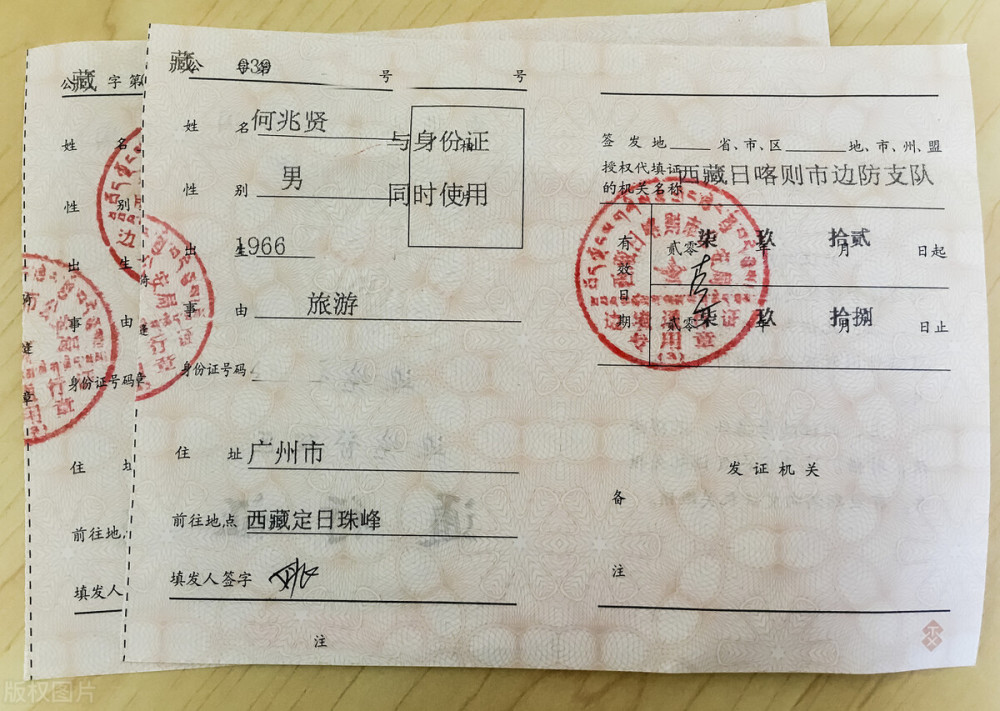 公 藏 字 第
姓 名
性 别
出 生
事 由
身份证号码
住 址
前往地
填发人
藏公 字第 039 号 号
姓 名 何兆贤
与身份证
同时使用
性 别 男
出 生 1966
事 由 旅游
身份证号码
住 址 广州市
前往地点 西藏定日珠峰
填发人签字
注
签发地 省、市、区 地、市、州、盟
授权代填证
的机关名称 西藏日喀则市边防支队
有效日期
贰零 柒 年 玖 月 拾贰 日起
贰零 柒 年 玖 月 拾捌 日止
边境通行证
专用章
(3)
发证机关
备
注
版权图片